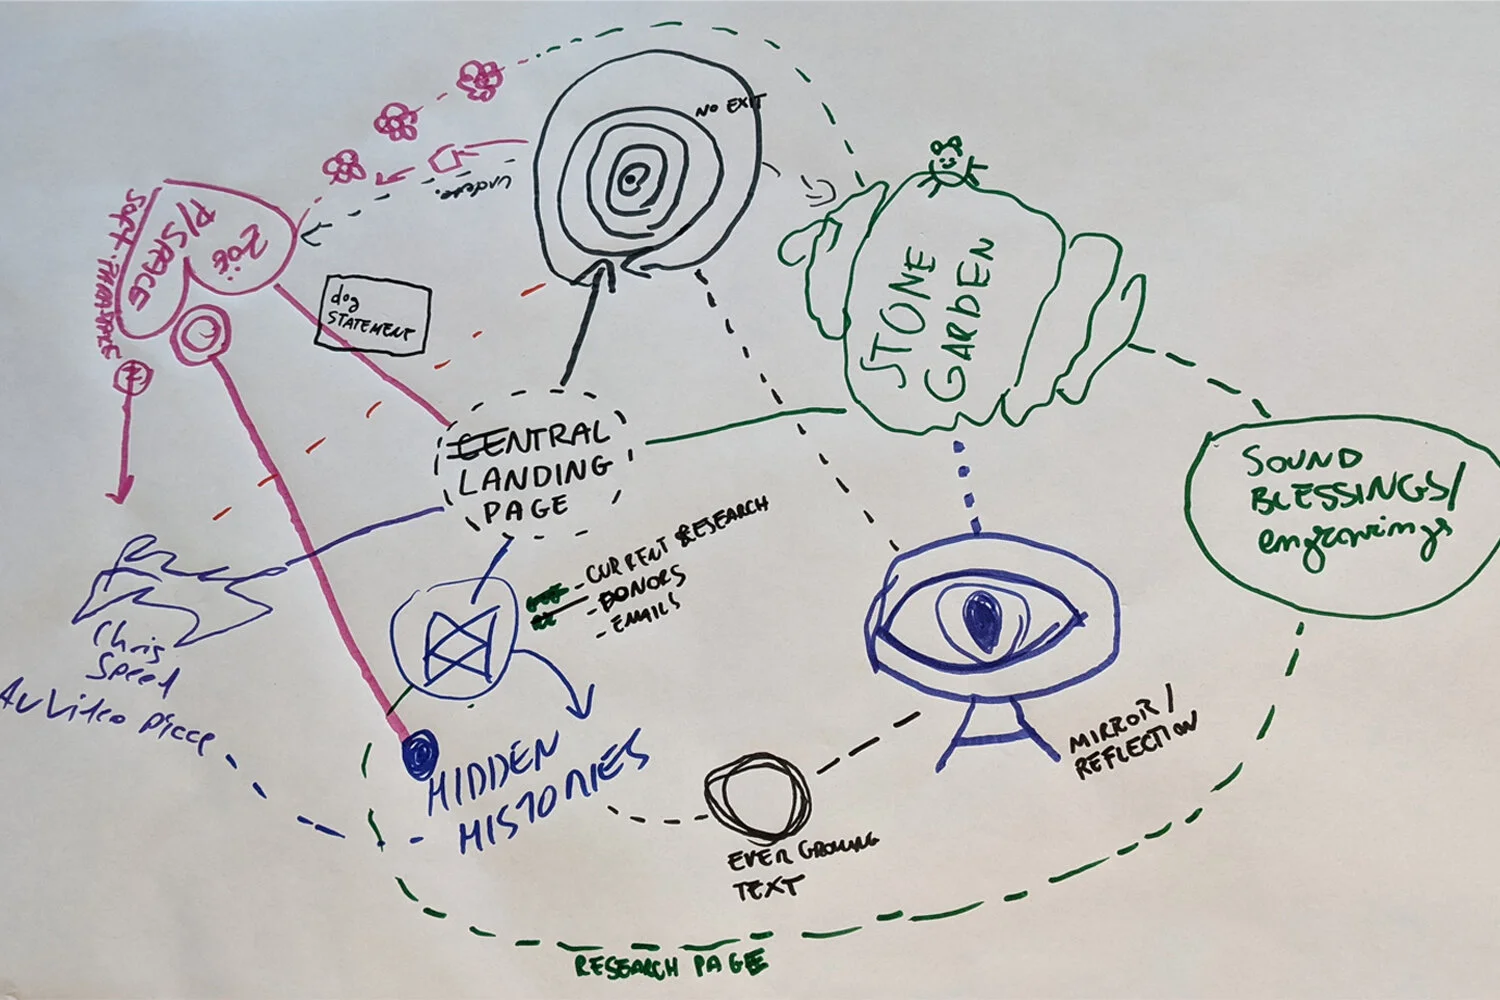 NO EXIT
undefe.
Zoë
P/SPACE
dog
STATEMENT
STONE
GARDEN
CENTRAL
LANDING
PAGE
SOUND
BLESSINGS/
engravings
- CURRENT RESEARCH
- DONORS
- EMAILS
Chris
Speed
AV Video piece
HIDDEN
HISTORIES
MIRROR/
REFLECTION
EVER GROWING
TEXT
RESEARCH PAGE